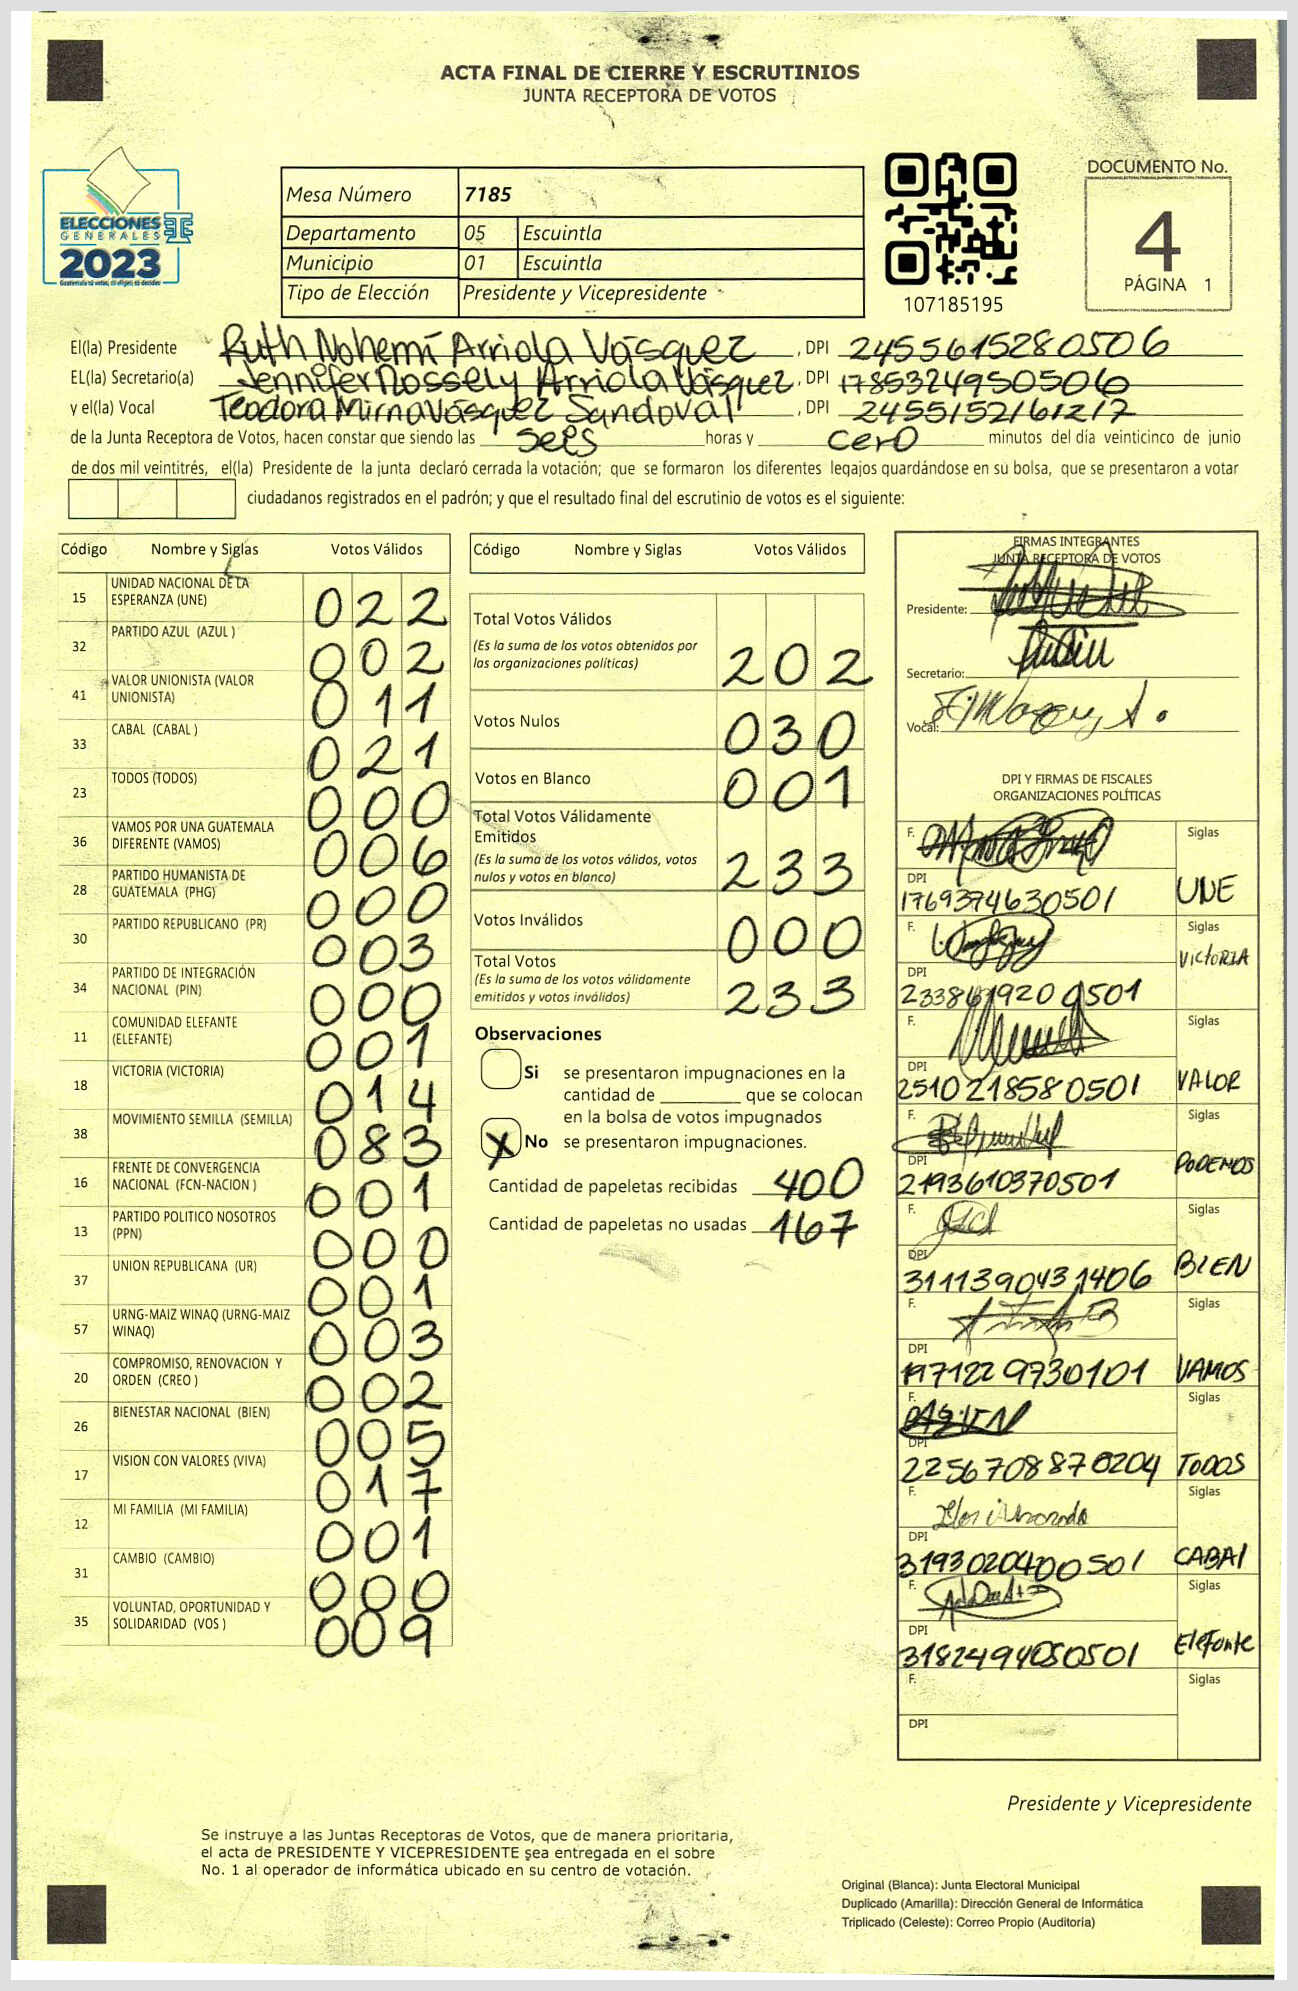 ACTA FINAL DE CIERRE Y ESCRUTINIOS
JUNTA RECEPTORA DE VOTOS
ELECCIONES
GENERALES
2023
Guatemala tú votas, tú eliges, tú decides
Mesa Número 7185
Departamento 05 Escuintla
Municipio 01 Escuintla
Tipo de Elección Presidente y Vicepresidente
107185195
DOCUMENTO No.
4
PÁGINA 1
El(la) Presidente Ruth Nohemí Arriola Vásquez, DPI 2455615280506
EL(la) Secretario(a) Jennifer Rossely Arriola Vásquez, DPI 1785324950506
y el(la) Vocal Teodora Mirna Vásquez Sandoval, DPI 2455152161217
de la Junta Receptora de Votos, hacen constar que siendo las seis horas y cero minutos del día veinticinco de junio
de dos mil veintitrés, el(la) Presidente de la junta declaró cerrada la votación; que se formaron los diferentes legajos guardándose en su bolsa, que se presentaron a votar
ciudadanos registrados en el padrón; y que el resultado final del escrutinio de votos es el siguiente:
Código Nombre y Siglas Votos Válidos
15 UNIDAD NACIONAL DE LA ESPERANZA (UNE) 022
32 PARTIDO AZUL (AZUL ) 002
41 VALOR UNIONISTA (VALOR UNIONISTA) 011
33 CABAL (CABAL ) 021
23 TODOS (TODOS) 000
36 VAMOS POR UNA GUATEMALA DIFERENTE (VAMOS) 006
28 PARTIDO HUMANISTA DE GUATEMALA (PHG) 000
30 PARTIDO REPUBLICANO (PR) 003
34 PARTIDO DE INTEGRACIÓN NACIONAL (PIN) 000
11 COMUNIDAD ELEFANTE (ELEFANTE) 001
18 VICTORIA (VICTORIA) 014
38 MOVIMIENTO SEMILLA (SEMILLA) 083
16 FRENTE DE CONVERGENCIA NACIONAL (FCN-NACION ) 001
13 PARTIDO POLITICO NOSOTROS (PPN) 000
37 UNION REPUBLICANA (UR) 001
57 URNG-MAIZ WINAQ (URNG-MAIZ WINAQ) 003
20 COMPROMISO, RENOVACION Y ORDEN (CREO ) 002
26 BIENESTAR NACIONAL (BIEN) 005
17 VISION CON VALORES (VIVA) 017
12 MI FAMILIA (MI FAMILIA) 001
31 CAMBIO (CAMBIO) 000
35 VOLUNTAD, OPORTUNIDAD Y SOLIDARIDAD (VOS ) 009
Código Nombre y Siglas Votos Válidos
Total Votos Válidos
(Es la suma de los votos obtenidos por
las organizaciones políticas) 202
Votos Nulos 030
Votos en Blanco 001
Total Votos Válidamente
Emitidos
(Es la suma de los votos válidos, votos
nulos y votos en blanco) 233
Votos Inválidos 000
Total Votos
(Es la suma de los votos válidamente
emitidos y votos inválidos) 233
Observaciones
Si se presentaron impugnaciones en la
cantidad de ________ que se colocan
en la bolsa de votos impugnados
X No se presentaron impugnaciones.
Cantidad de papeletas recibidas 400
Cantidad de papeletas no usadas 167
FIRMAS INTEGRANTES
JUNTA RECEPTORA DE VOTOS
Presidente:
Secretario:
Vocal:
DPI Y FIRMAS DE FISCALES
ORGANIZACIONES POLÍTICAS
F. Siglas
DPI 1769374630501 UNE
F. Siglas
DPI 2338619200501 VICTORIA
F. Siglas
DPI 2510218580501 VALOR
F. Siglas
DPI 2193610370501 PODEMOS
F. Siglas
DPI 3111390431406 BIEN
F. Siglas
DPI 1971229730101 VAMOS
F. Siglas
DPI 2256708870204 TODOS
F. Siglas
DPI 3193020400501 CABAL
F. Siglas
DPI 3182494050501 Elefante
F. Siglas
DPI
Presidente y Vicepresidente
Se instruye a las Juntas Receptoras de Votos, que de manera prioritaria,
el acta de PRESIDENTE Y VICEPRESIDENTE sea entregada en el sobre
No. 1 al operador de informática ubicado en su centro de votación.
Original (Blanca): Junta Electoral Municipal
Duplicado (Amarilla): Dirección General de Informática
Triplicado (Celeste): Correo Propio (Auditoría)